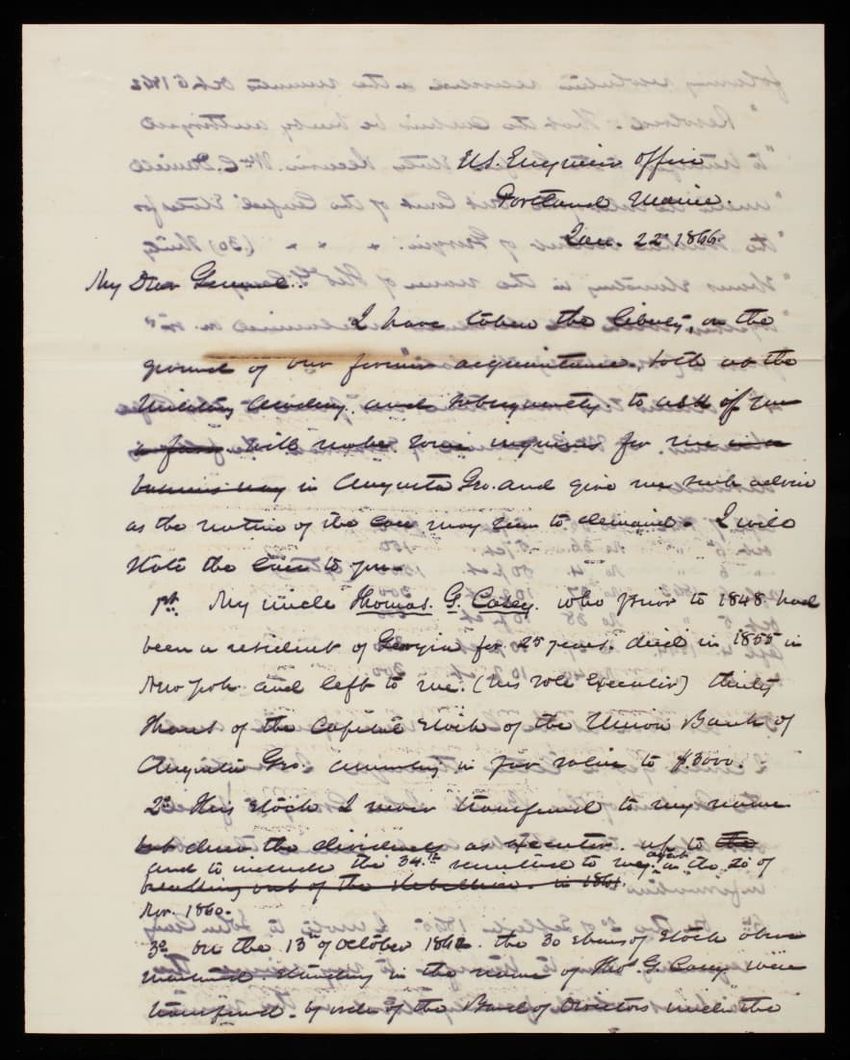 U.S. Engineer Office
Portland Maine.
Jan. 22d 1866.
My Dear General.
I have taken the liberty, on the
ground of our former acquaintance, both at the
Military Academy, and subsequently, to ask if you
a favor will make some inquiries for me in a
business way in Augusta Geo. and give me such advice
as the nature of the case may seem to demand. I will
state the case to you.
1st. My uncle Thomas. G. Casey. who prior to 1848 had
been a resident of Georgia for 25 years. died in 1855 in
New York and left to me. (his sole Executor) thirty
shares of the Capital Stock of the Union Bank of
Augusta Geo. amounting in par value to $3000.
2d. This stock I never transferred to my name
but drew the dividends as executor. up to the
and to include the 34.th remitted to my agent in the 20 of
breaking out of the Rebellion. in 1861.
Nov. 1860.
3d On the 13th of October 1862. the 30 shares of stock above
mentioned standing in the name of Thos. G. Casey were
transferred. by order of the Board of Directors under the